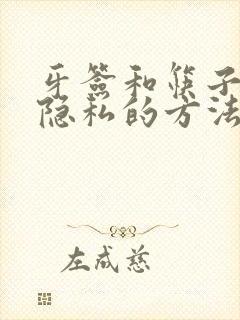 牙签和筷子
隐私的方法
左成慈